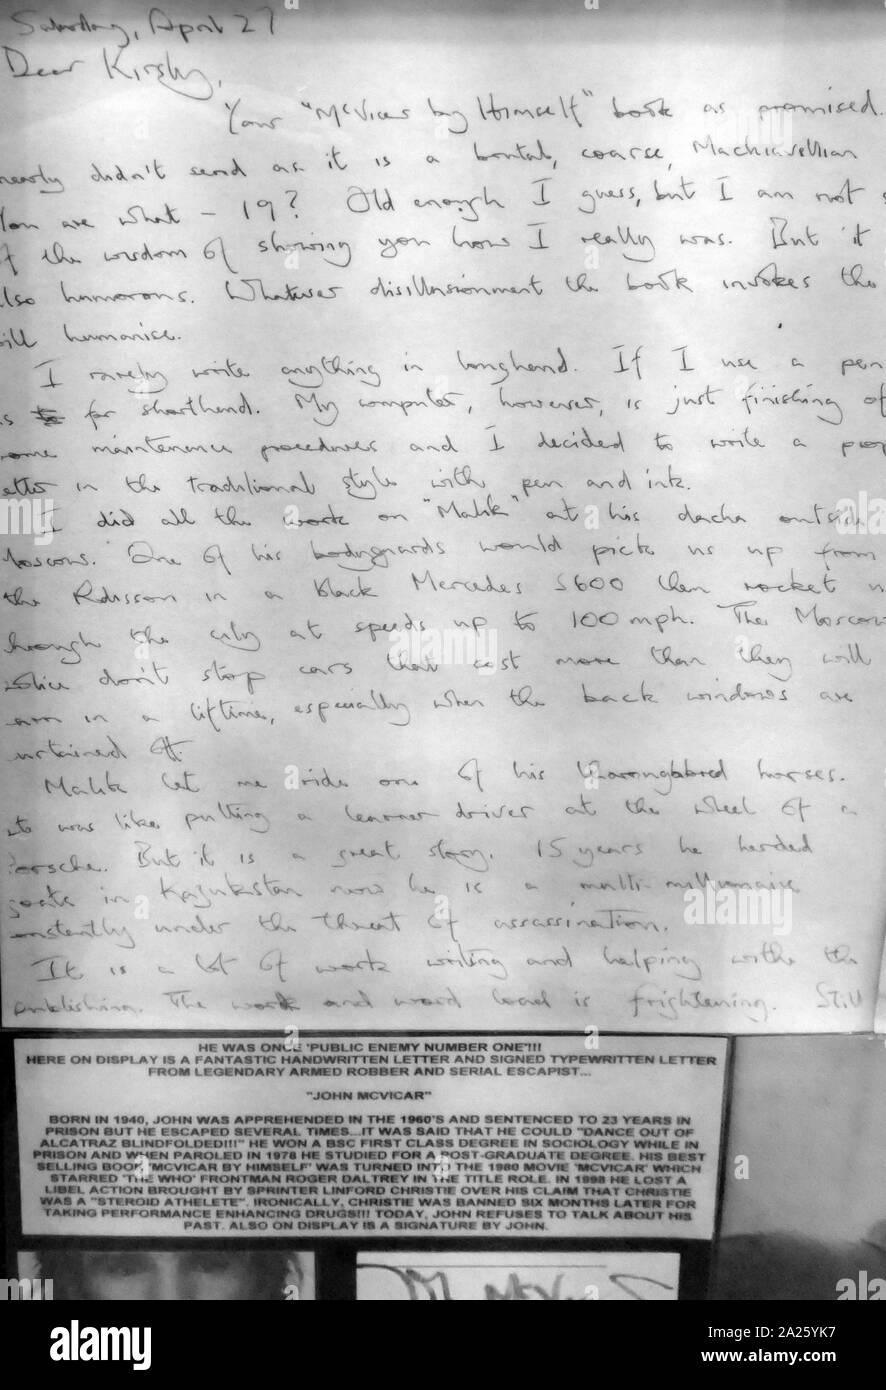 Saturday, April 27
Dear Kirsty,
Your "McVicar by Himself" book as promised.
nearly didn't send as it is a brutal, coarse, Machiavellian
You are what - 19? Old enough I guess, but I am not s
f the wisdom of showing you how I really was. But it
lso humorous. Whatever disillusionment the book invokes the
ill humanise.
I rarely write anything in longhand. If I use a pen
is for shorthand. My computer, however, is just finishing of
ome maintenence procedures and I decided to write a prop
etter in the traditional style with pen and ink.
I did all the work on "Malik" at his dacha outside
Moscow. One of his bodyguards would pick us up from
the Radisson in a black Mercedes S600 then rocket u
hrough the city at speeds up to 100 mph. The Moscow
olice don't stop cars that cost more than they will
earn in a lifetime, especially when the back windows are
urtained off.
Malik let me ride one of his thoroughbred horses.
It was like putting a learner driver at the wheel of a
Porsche. But it is a great story. 15 years he herded
goats in Kazukstan now he is a multi-millionaire
onstantly under the threat of assassination.
It is a lot of work writing and helping with the
publishing. The work and word load is frightening. Still
HE WAS ONCE 'PUBLIC ENEMY NUMBER ONE'!!!
HERE ON DISPLAY IS A FANTASTIC HANDWRITTEN LETTER AND SIGNED TYPEWRITTEN LETTER
FROM LEGENDARY ARMED ROBBER AND SERIAL ESCAPIST...
"JOHN MCVICAR"
BORN IN 1940, JOHN WAS APPREHENDED IN THE 1960'S AND SENTENCED TO 23 YEARS IN
PRISON BUT HE ESCAPED SEVERAL TIMES...IT WAS SAID THAT HE COULD "DANCE OUT OF
ALCATRAZ BLINDFOLDED!!!" HE WON A BSC FIRST CLASS DEGREE IN SOCIOLOGY WHILE IN
PRISON AND WHEN PAROLED IN 1978 HE STUDIED FOR A POST-GRADUATE DEGREE. HIS BEST
SELLING BOOK 'MCVICAR BY HIMSELF' WAS TURNED INTO THE 1980 MOVIE 'MCVICAR' WHICH
STARRED 'THE WHO' FRONTMAN ROGER DALTREY IN THE TITLE ROLE. IN 1998 HE LOST A
LIBEL ACTION BROUGHT BY SPRINTER LINFORD CHRISTIE OVER HIS CLAIM THAT CHRISTIE
WAS A "STEROID ATHELETE". IRONICALLY, CHRISTIE WAS BANNED SIX MONTHS LATER FOR
TAKING PERFORMANCE ENHANCING DRUGS!!! TODAY, JOHN REFUSES TO TALK ABOUT HIS
PAST. ALSO ON DISPLAY IS A SIGNATURE BY JOHN.
alamy
Image ID: 2A25YK7
www.alamy.com